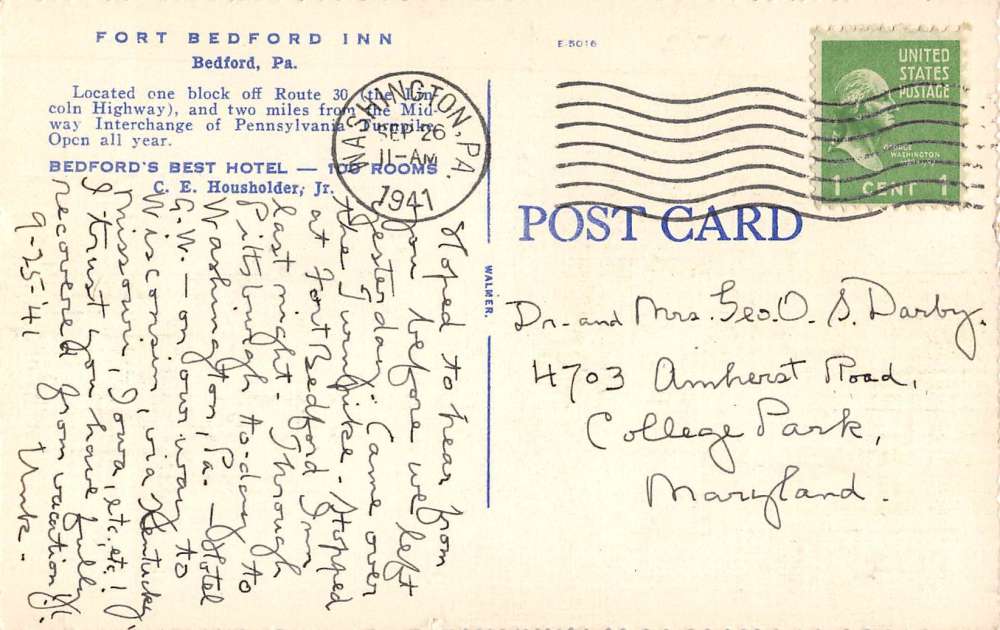 FORT BEDFORD INN
Bedford, Pa.
Located one block off Route 30 (the Lin-
coln Highway), and two miles from the Mid-
way Interchange of Pennsylvania Turnpike.
Open all year.
BEDFORD'S BEST HOTEL — 100 ROOMS
C. E. Housholder, Jr.
E-5016
WASHINGTON, PA.
SEP 26
11-AM
1941
UNITED
STATES
POSTAGE
GEORGE
WASHINGTON
1 CENT 1
POST CARD
WALKER.
Hoped to hear from
you before we left
yesterday. Came over
the Turnpike. Stopped
at Fort Bedford Inn
last night. Through
Pittsburgh to-day to
Washington, Pa. – Hotel
G.W. – on our way to
Wisconsin, via Kentucky,
Missouri, Iowa, etc. etc.!
I trust you have fully
recovered from vacation
9-25-41 Unk.
Dr. and Mrs. Geo. O. S. Darby.
4703 Amherst Road,
College Park,
Maryland.